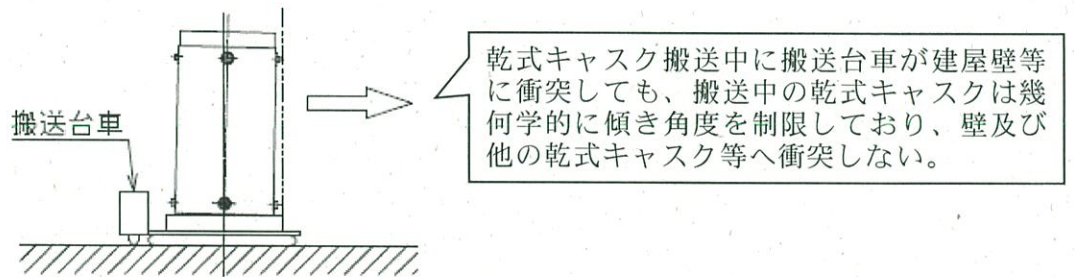 乾式キャスク搬送中に搬送台車が建屋壁等
に衝突しても、搬送中の乾式キャスクは幾
何学的に傾き角度を制限しており、壁及び
他の乾式キャスク等へ衝突しない。
搬送台車